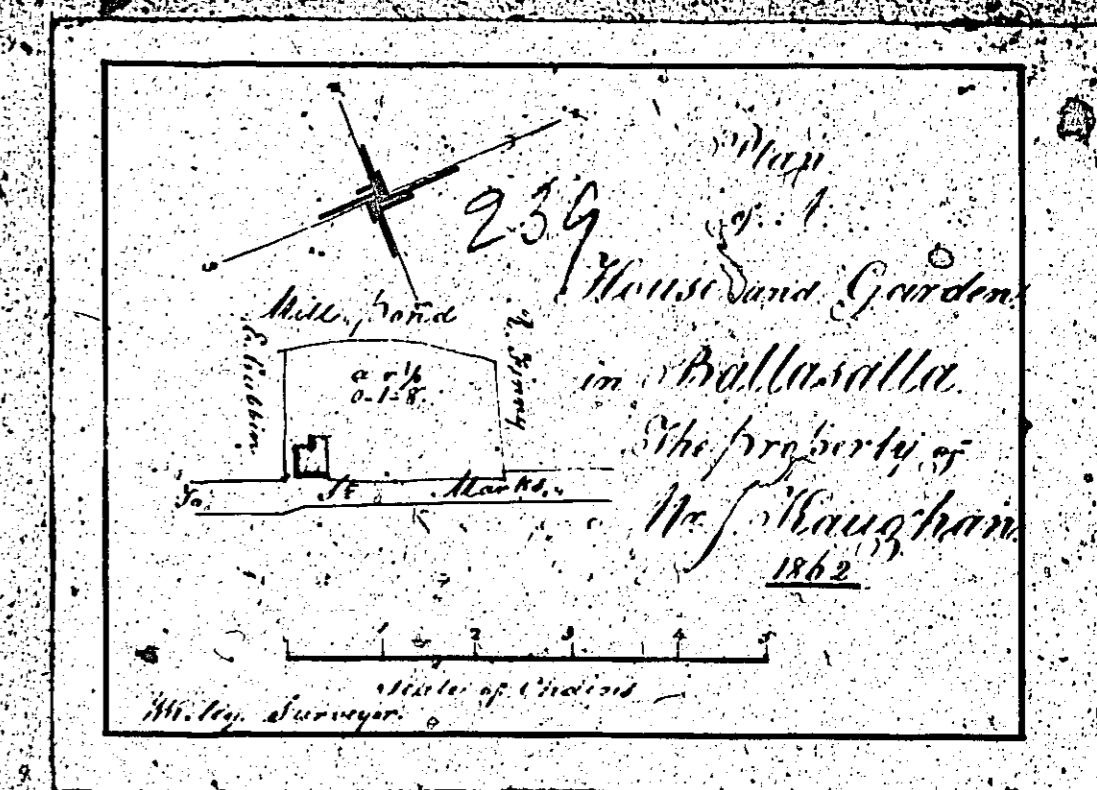 Plan
239
of
House and Garden
in Ballasalla
The property of
Mr J. Kaughan
1862
Mill pond
E. Cubbin
a r p
0-1-8
To St Marks
1 2 3 4 5
Scale of Chains
Surveyor